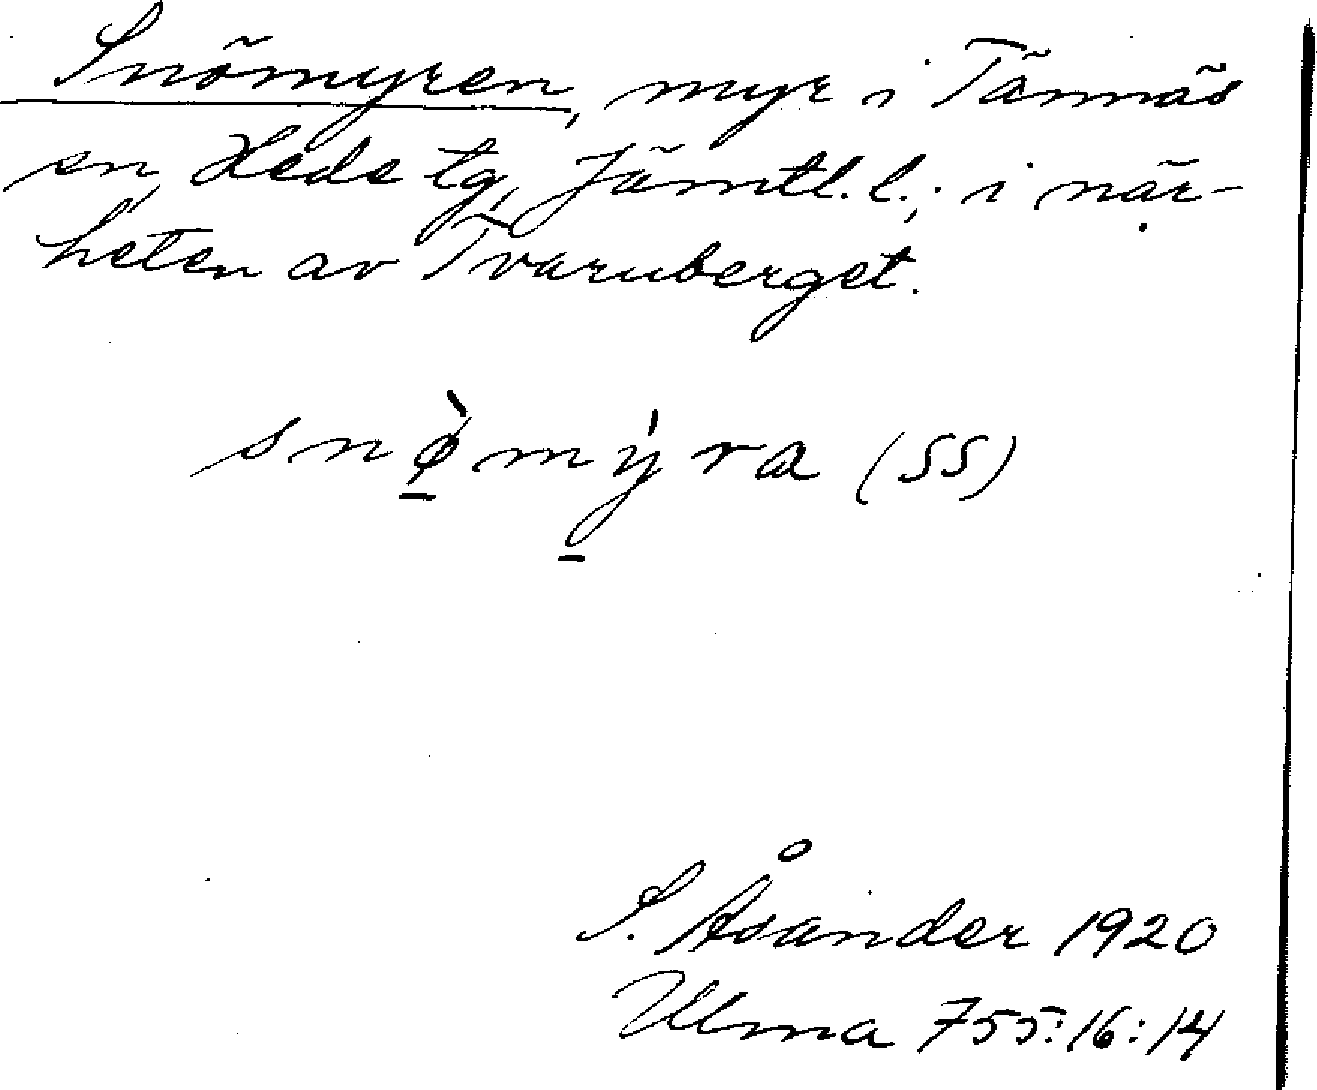 Snömyren, myr i Tännäs
sn, Hede tg, Jämtl. l.; i när-
heten av Tvaruberget.
snø̠̀mý̠ra (SS)
S. Åsander 1920
Ulma 755:16:14